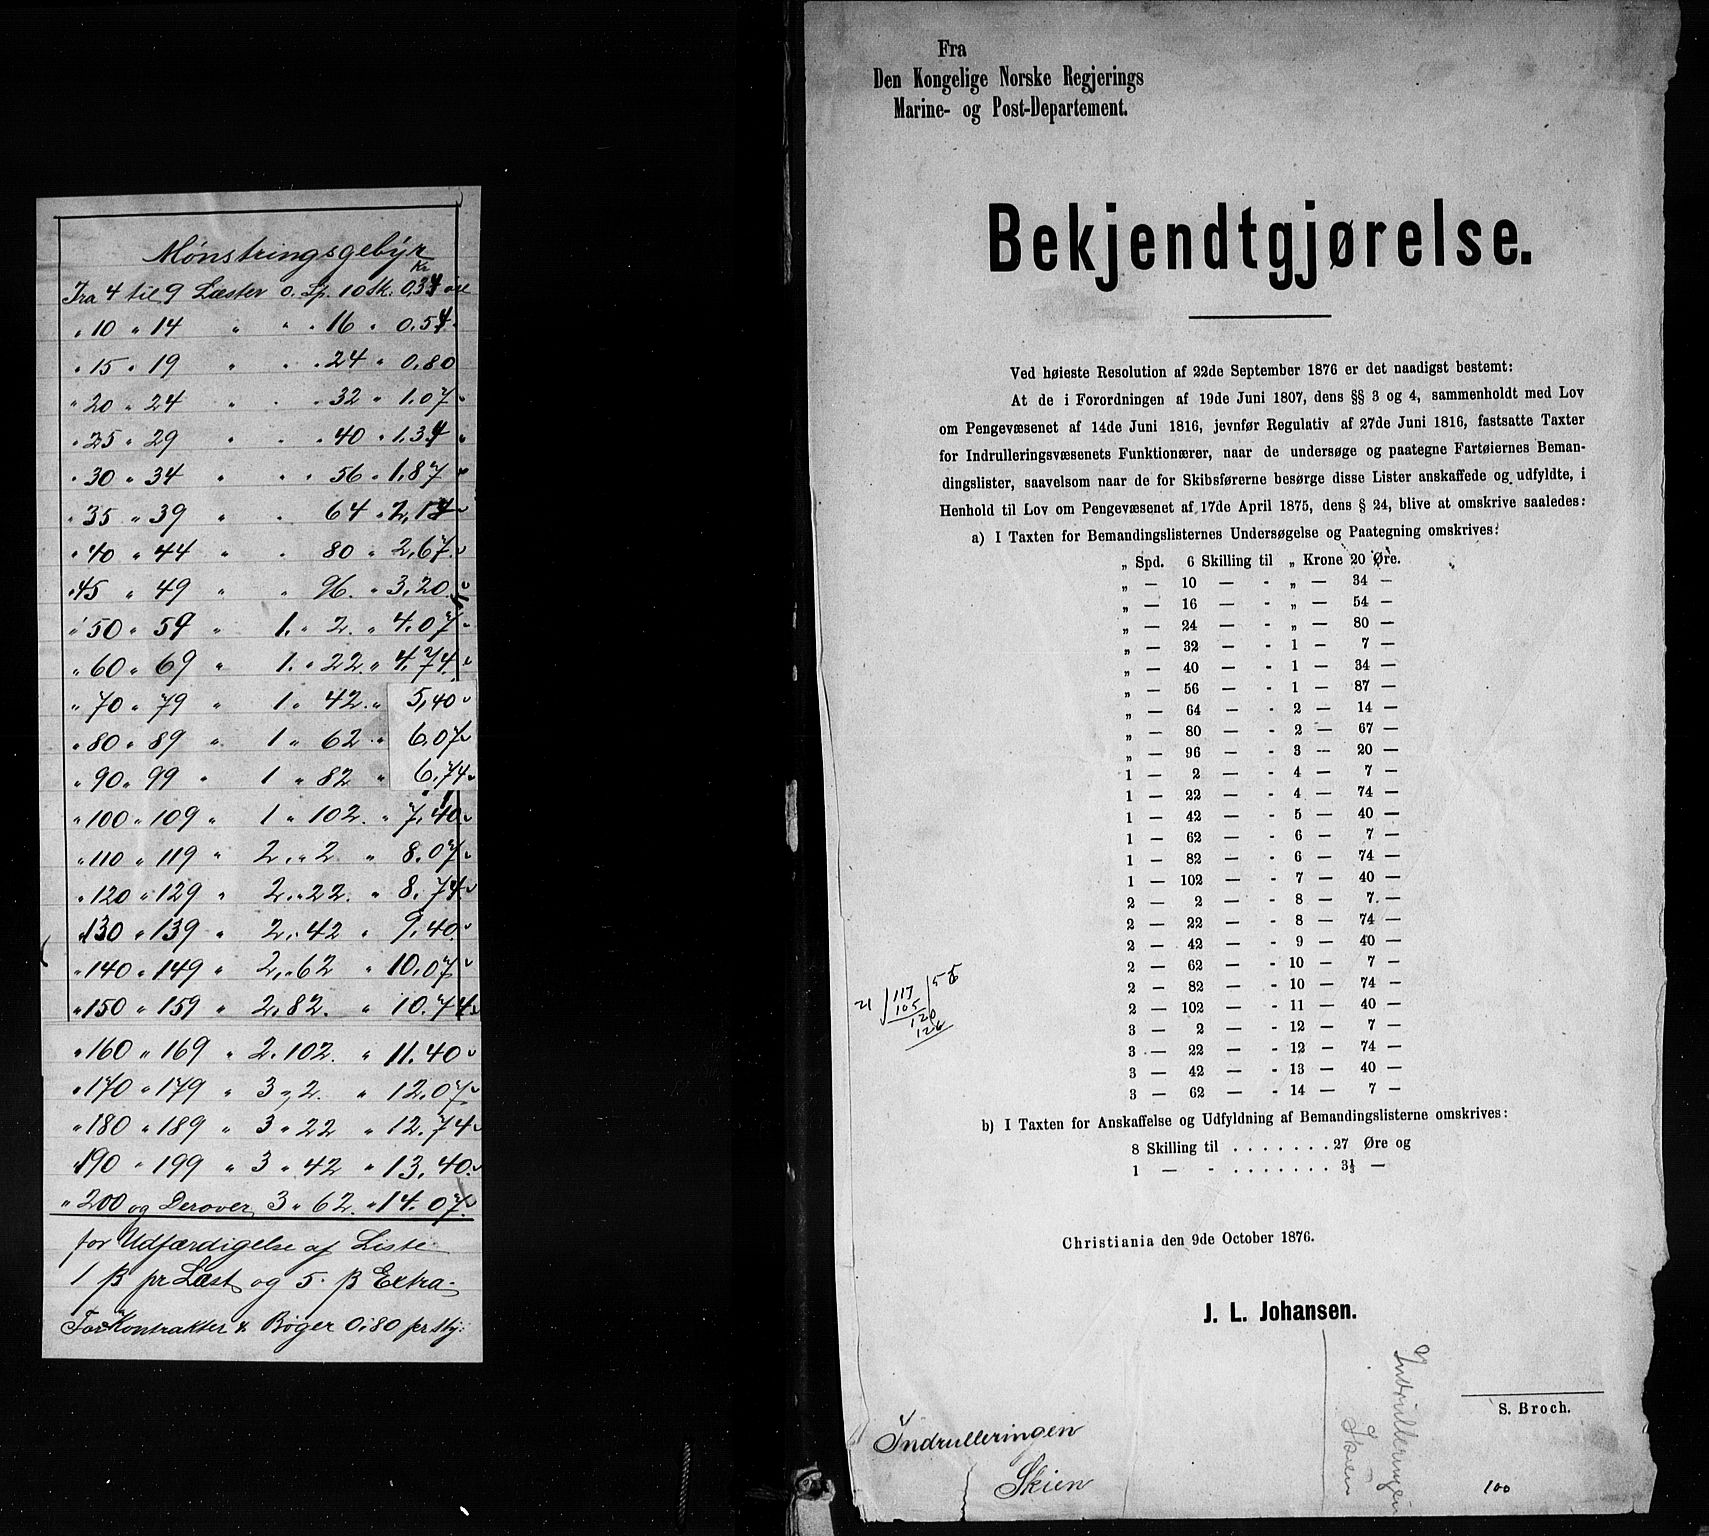 Mønstringsgebýr
Kr
Fra 4 til 9 Læster 0. Sp. 10 sk. 0,34 øre
" 10 " 14 " " " 16 " 0.54
" 15 " 19 " " " 24 " 0.80
" 20 " 24 " " " 32 " 1.07
" 25 " 29 " " " 40 " 1.34
" 30 " 34 " " " 56 " 1.87
" 35 " 39 " " 64 " 2,14
" 40 " 44 " " 80 " 2,67
" 45 " 49 " " 96. " 3,20
" 50 " 59 " 1. " 2. " 4.07
" 60 " 69 " 1. " 22. " 4.74
" 70 " 79 " 1 " 42. " 5,40
" 80 " 89 " 1 " 62 " 6,07
" 90 " 99 " 1 " 82 " 6,74
" 100 " 109 " 1 " 102. " 7,40
" 110 " 119 " 2. " 2 " 8.07
" 120 " 129 " 2. " 22. " 8.74
" 130 " 139 " 2. " 42 " 9,40
" 140 " 149 " 2. " 62 " 10.07
" 150 " 159 " 2. 82. " 10.74
" 160 " 169 " 2. 102. " 11.40
" 170 " 179 " 3 " 2. " 12.07
" 180 " 189 " 3 " 22 " 12.74
" 190 " 199 " 3 " 42 " 13,40
" 200 og Derover 3 " 62. " 14.07
for Udfærdigelse af Liste
1 ß pr Læst og 5. ß Extra
For Kontrakter & Bøger 0,80 pr stk:
Fra
Den Kongelige Norske Regjerings
Marine- og Post-Departement.
Bekjendtgjørelse.
Ved høieste Resolution af 22de September 1876 er det naadigst bestemt:
At de i Forordningen af 19de Juni 1807, dens §§ 3 og 4, sammenholdt med Lov
om Pengevæsenet af 14de Juni 1816, jevnfør Regulativ af 27de Juni 1816, fastsatte Taxter
for Indrulleringsvæsenets Funktionærer, naar de undersøge og paategne Fartøiernes Beman-
dingslister, saavelsom naar de for Skibsførerne besørge disse Lister anskaffede og udfyldte, i
Henhold til Lov om Pengevæsenet af 17de April 1875, dens § 24, blive at omskrive saaledes:
a) I Taxten for Bemandingslisternes Undersøgelse og Paategning omskrives:
„ Spd. 6 Skilling til „ Krone 20 Øre.
„ — 10 — - „ — 34 —
„ — 16 — - „ — 54 —
„ — 24 — - „ — 80 —
„ — 32 — - 1 — 7 —
„ — 40 — - 1 — 34 —
„ — 56 — - 1 — 87 —
„ — 64 — - 2 — 14 —
„ — 80 — - 2 — 67 —
„ — 96 — - 3 — 20 —
1 — 2 — - 4 — 7 —
1 — 22 — - 4 — 74 —
1 — 42 — - 5 — 40 —
1 — 62 — - 6 — 7 —
1 — 82 — - 6 — 74 —
1 — 102 — - 7 — 40 —
2 — 2 — - 8 — 7. —
2 — 22 — - 8 — 74 —
2 — 42 — - 9 — 40 —
2 — 62 — - 10 — 7 —
2 — 82 — - 10 — 74 —
2 — 102 — - 11 — 40 —
3 — 2 — - 12 — 7 —
3 — 22 — - 12 — 74 —
3 — 42 — - 13 — 40 —
3 — 62 — - 14 — 7 —
21 / 117 /
105
120
126
b) I Taxten for Anskaffelse og Udfyldning af Bemandingslisterne omskrives:
8 Skilling til . . . . . . . 27 Øre og
1 — - . . . . . . . 3⅓ —
Christiania den 9de October 1876.
J. L. Johansen.
S. Broch.
Indrulleringen
Skien
Indrulleringen
Skien
100